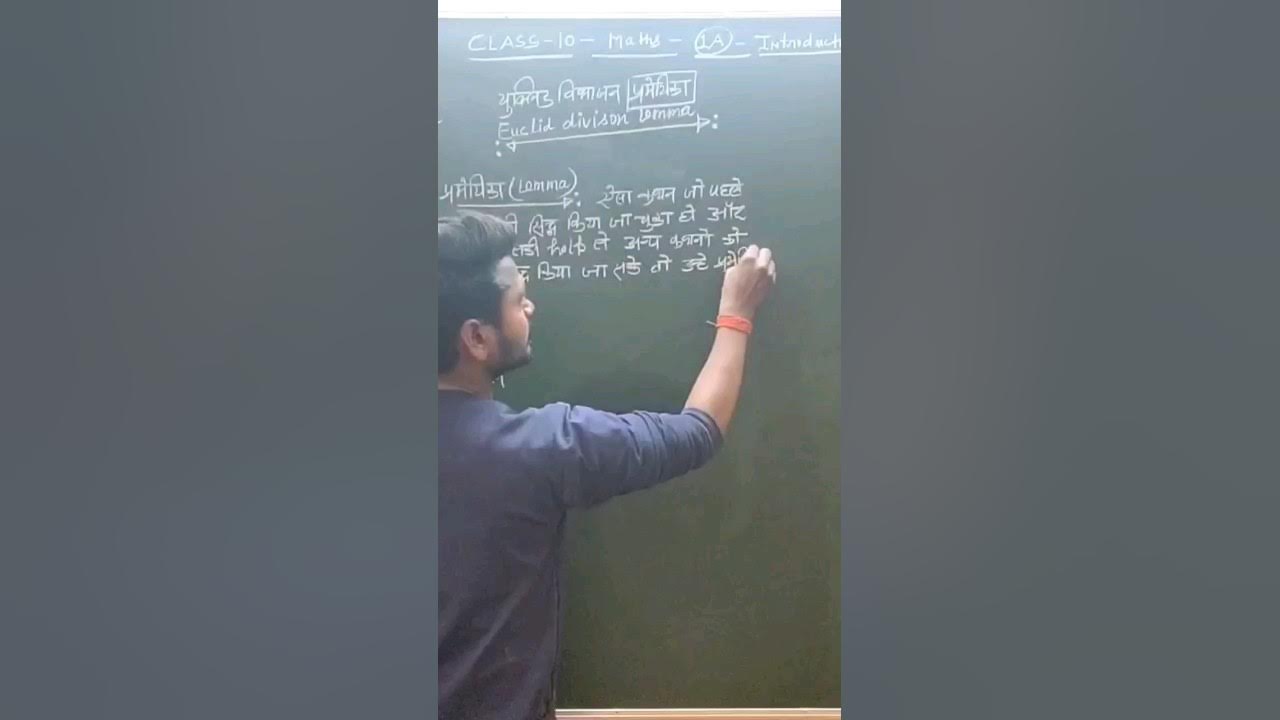 CLASS-10- Maths - 1A - Introduct
युक्लिड विभाजन प्रमेयिका
Euclid divison Lemma
प्रमेयिका (Lemma): ऐसा कथन जो पहले
सिद्ध किया जा चुका हो और
help से अन्य कथनों को
किया जा सके तो उन्हे